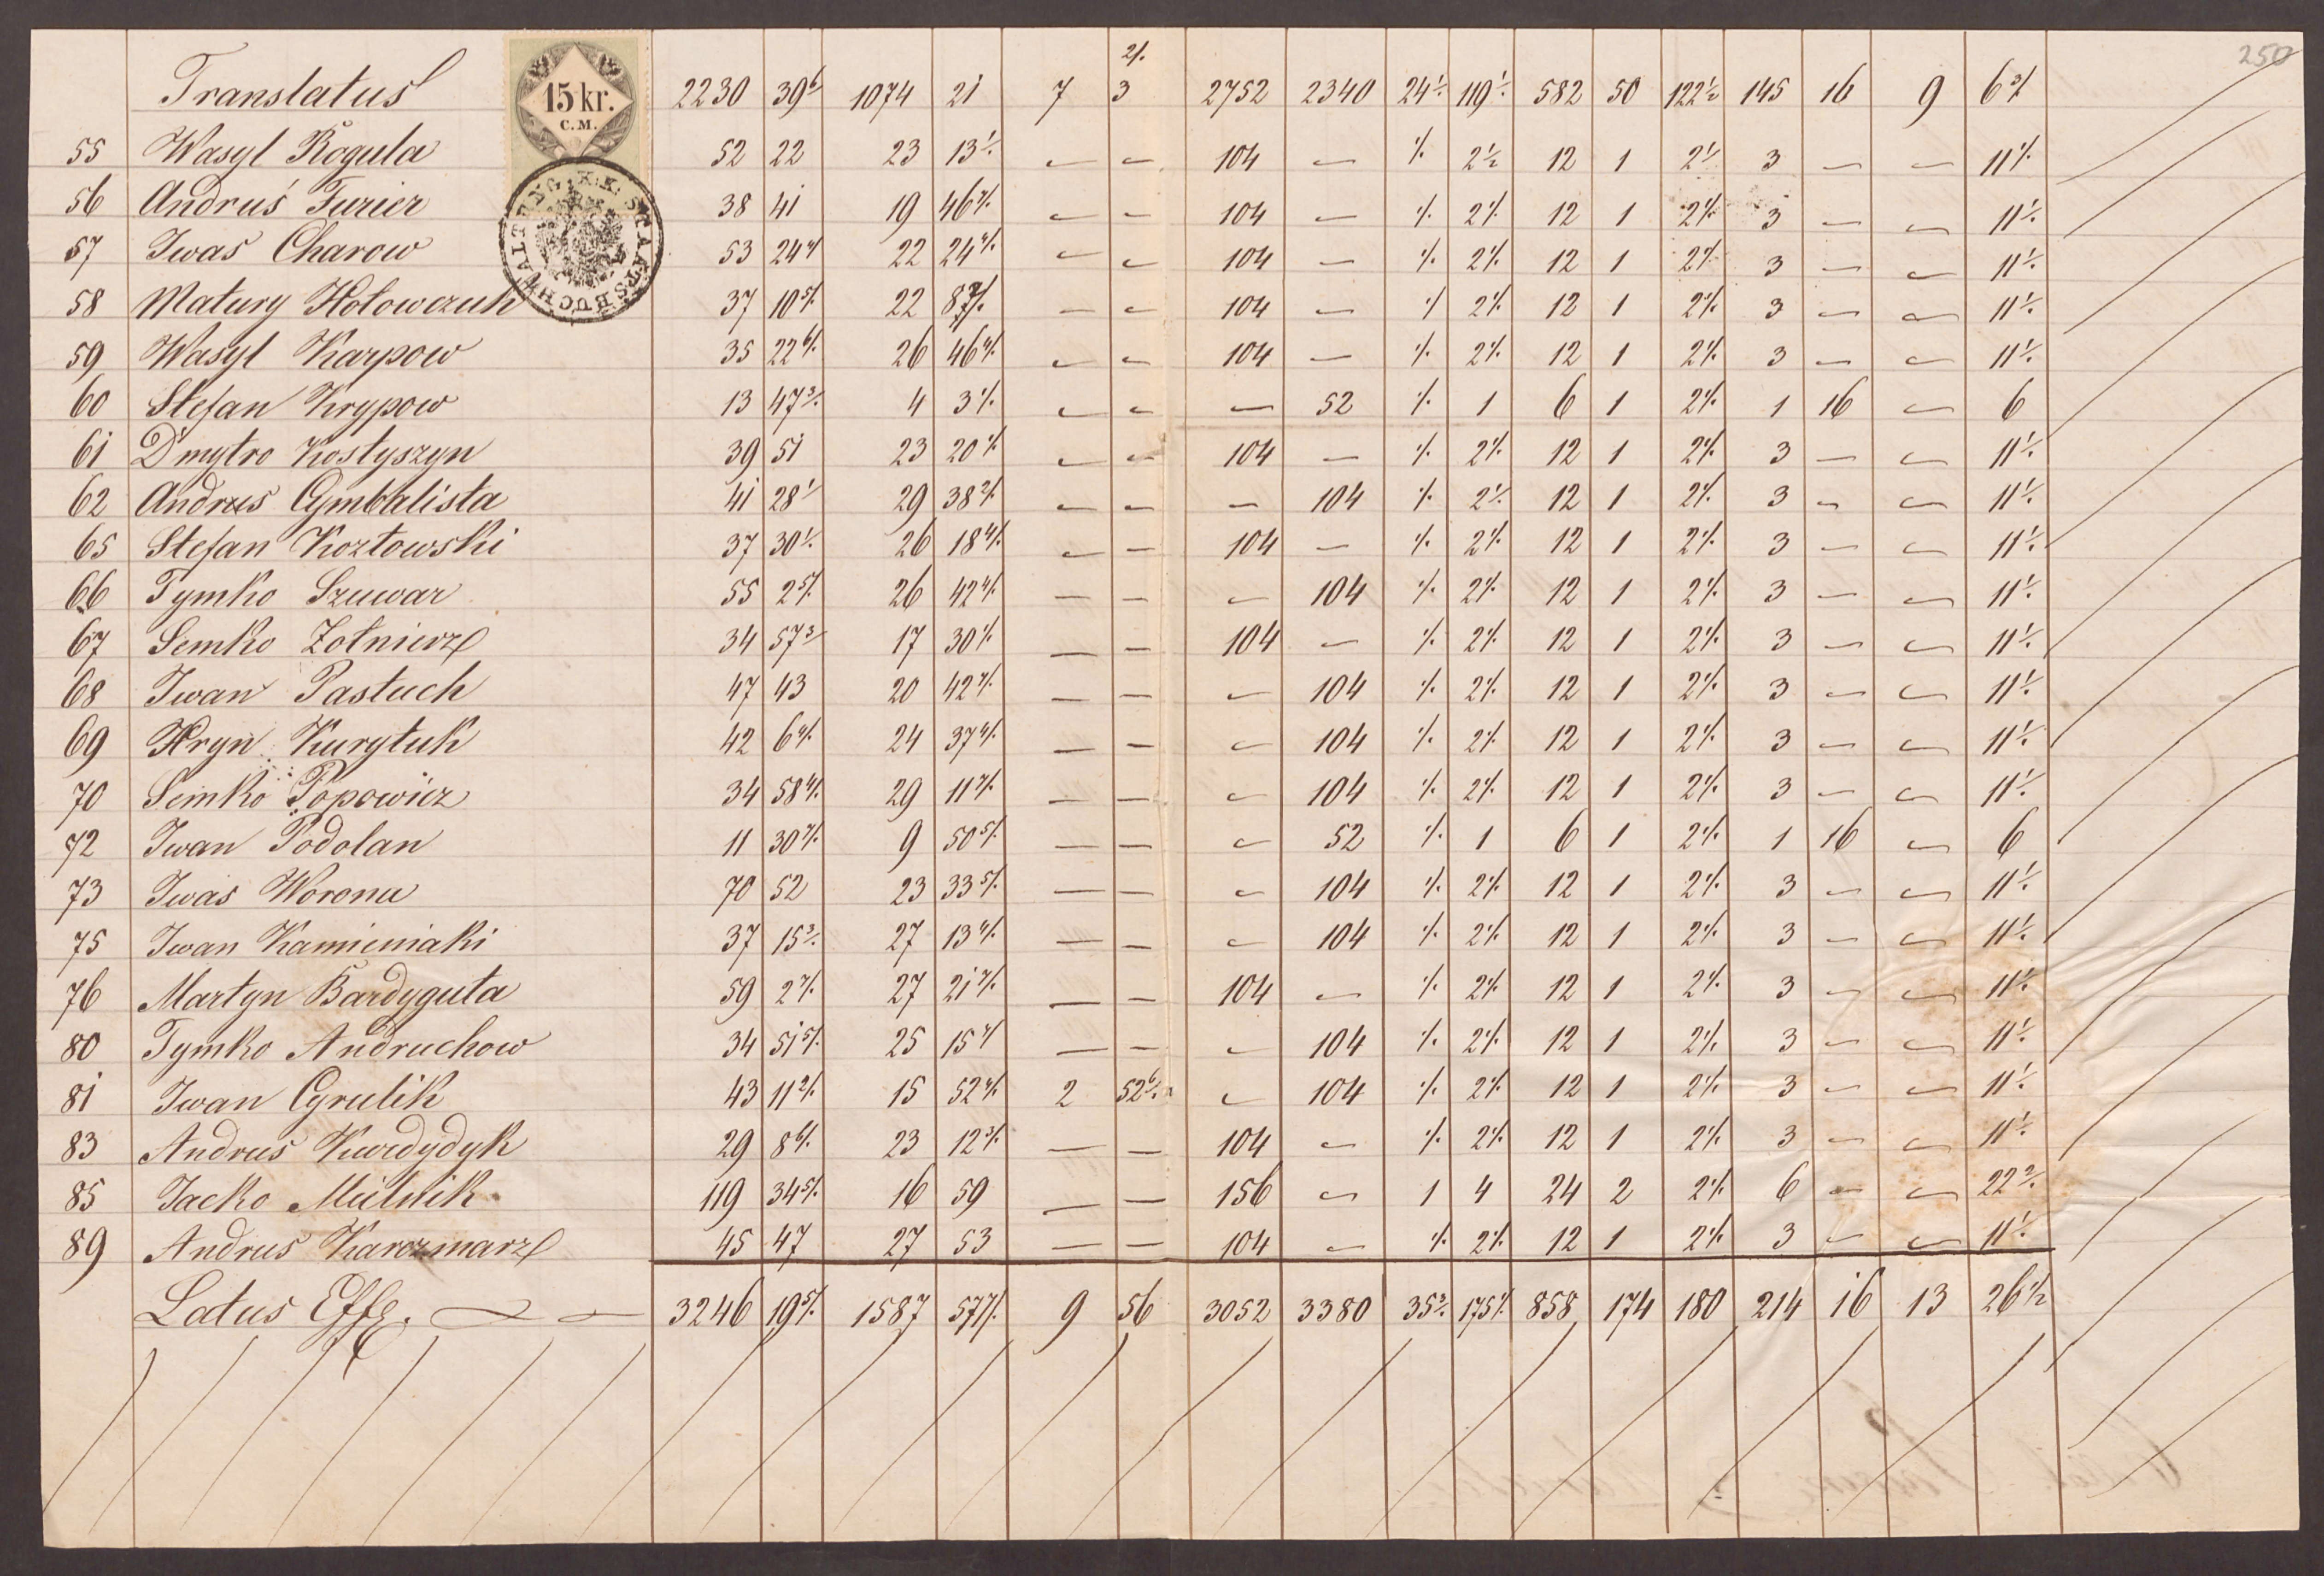 250
2/.
Translatus 2230 39 6/ 1074 21 7 3 2752 2340 24 1/. 119 1/. 582 50 122 1/2 145 16 9 6 3/.
15 kr.
C.M.
K.K. STAATSBUCHHALTUNG
55 Wasyl Rogula 52 22 23 13 1/. — — 104 — 1/. 2 1/2 12 1 2 1/. 3 — — 11 1/.
56 Andruś Furier 38 41 19 46 7/. — — 104 — 1/. 2 1/. 12 1 2 1/. 3 — — 11 1/.
57 Iwas Charow 53 24 4/ 22 24 4/. — — 104 — 1/. 2 1/. 12 1 2 1/. 3 — — 11 1/.
58 Matury Hołowczuk 37 10 5/. 22 8 — — 104 — 1/. 2 1/. 12 1 2 1/. 3 — — 11 1/.
59 Wasyl Karpow 35 22 6/. 26 46 4/. — — 104 — 1/. 2 1/. 12 1 2 1/. 3 — — 11 1/.
60 Stefan Krypow 13 47 3/. 4 3 1/. — — — 52 1/. 1 6 1 2 1/. 1 16 — 6
61 Dmytro Kostyszyn 39 51 23 20 1/. — — 104 — 1/. 2 1/. 12 1 2 1/. 3 — — 11 1/.
62 Andrus Cymbalista 41 28 1/ 29 38 2/. — — — 104 1/. 2 1/. 12 1 2 1/. 3 — — 11 1/.
65 Stefan Kozłowski 37 30 1/. 26 18 4/. — — 104 — 1/. 2 1/. 12 1 2 1/. 3 — — 11 1/.
66 Tymko Szuwar 55 2 5/. 26 42 4/. — — — 104 1/. 2 1/. 12 1 2 1/. 3 — — 11 1/.
67 Semko Żołnierz 34 57 3/ 17 30 1/. — — 104 — 1/. 2 1/. 12 1 2 1/. 3 — — 11 1/.
68 Iwan Pastuch 47 43 20 42 7/. — — — 104 1/. 2 1/. 12 1 2 1/. 3 — — 11 1/.
69 Hryn Kuryłuk 42 6 4/. 24 37 4/. — — — 104 1/. 2 1/. 12 1 2 1/. 3 — — 11 1/.
70 Semko Popowicz 34 58 4/. 29 11 7/. — — — 104 1/. 2 1/. 12 1 2 1/. 3 — — 11 1/.
72 Iwan Podolan 11 30 7/. 9 50 5/. — — — 52 1/. 1 6 1 2 1/. 1 16 — 6
73 Iwas Worona 70 52 23 33 5/. — — — 104 1/. 2 1/. 12 1 2 1/. 3 — — 11 1/.
75 Iwan Kamieniaki 37 15 3/. 27 13 4/. — — — 104 1/. 2 1/. 12 1 2 1/. 3 — — 11 1/.
76 Martyn Bardyguła 59 2 7/. 27 21 7/. — — 104 — 1/. 2 1/. 12 1 2 1/. 3 — — 11 1/.
80 Tymko Andruchow 34 51 5/. 25 15 7/ — — — 104 1/. 2 1/. 12 1 2 1/. 3 — — 11 1/.
81 Iwan Cyrulik 43 11 2/. 15 52 4/. 2 52 6/. — 104 1/. 2 1/. 12 1 2 1/. 3 — — 11 1/.
83 Andrus Kurdydyk 29 8 6/. 23 12 3/. — — 104 — 1/. 2 1/. 12 1 2 1/. 3 — — 11 1/.
85 Jacko Mielnik 119 34 5/. 16 59 — — 156 — 1 4 24 2 2 1/. 6 — — 22 2/.
89 Andrus Karczmarz 45 47 27 53 — — 104 — 1/. 2 1/. 12 1 2 1/. 3 — — 11 1/.
Latus Effe. 3246 19 5/. 1587 57 7/. 9 56 3052 3380 35 3/. 175 1/. 858 174 180 214 16 13 26 1/2